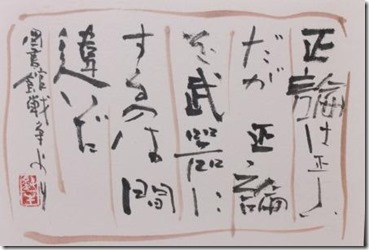 正論は正しい
だが 正論
を武器に
するのは間
違いだ
図書館戦争より